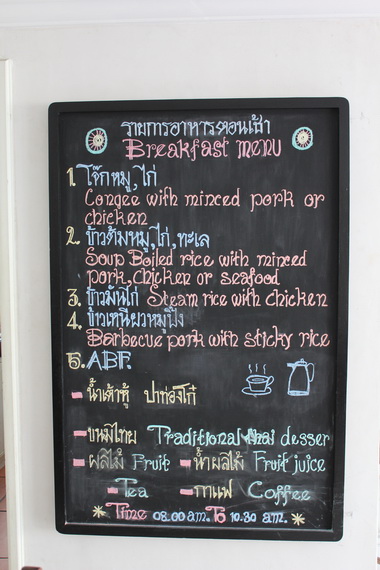 รายการอาหารตอนเช้า
Breakfast MENU
1. โจ๊กหมู,ไก่
Congee with minced pork or
chicken
2. ข้าวต้มหมู,ไก่,ทะเล
Soup Boiled rice with minced
pork, chicken or seafood
3. ข้าวมันไก่ Steam rice with chicken
4. ข้าวเหนียวหมูปิ้ง
Barbecue pork with sticky rice
5. ABF.
- น้ำเต้าหู้ ปาท่องโก๋
- ขนมไทย Traditional thai desser
- ผลไม้ Fruit - น้ำผลไม้ Fruit juice
- Tea - กาแฟ Coffee
* Time 08.00 am. To 10.30 am. *